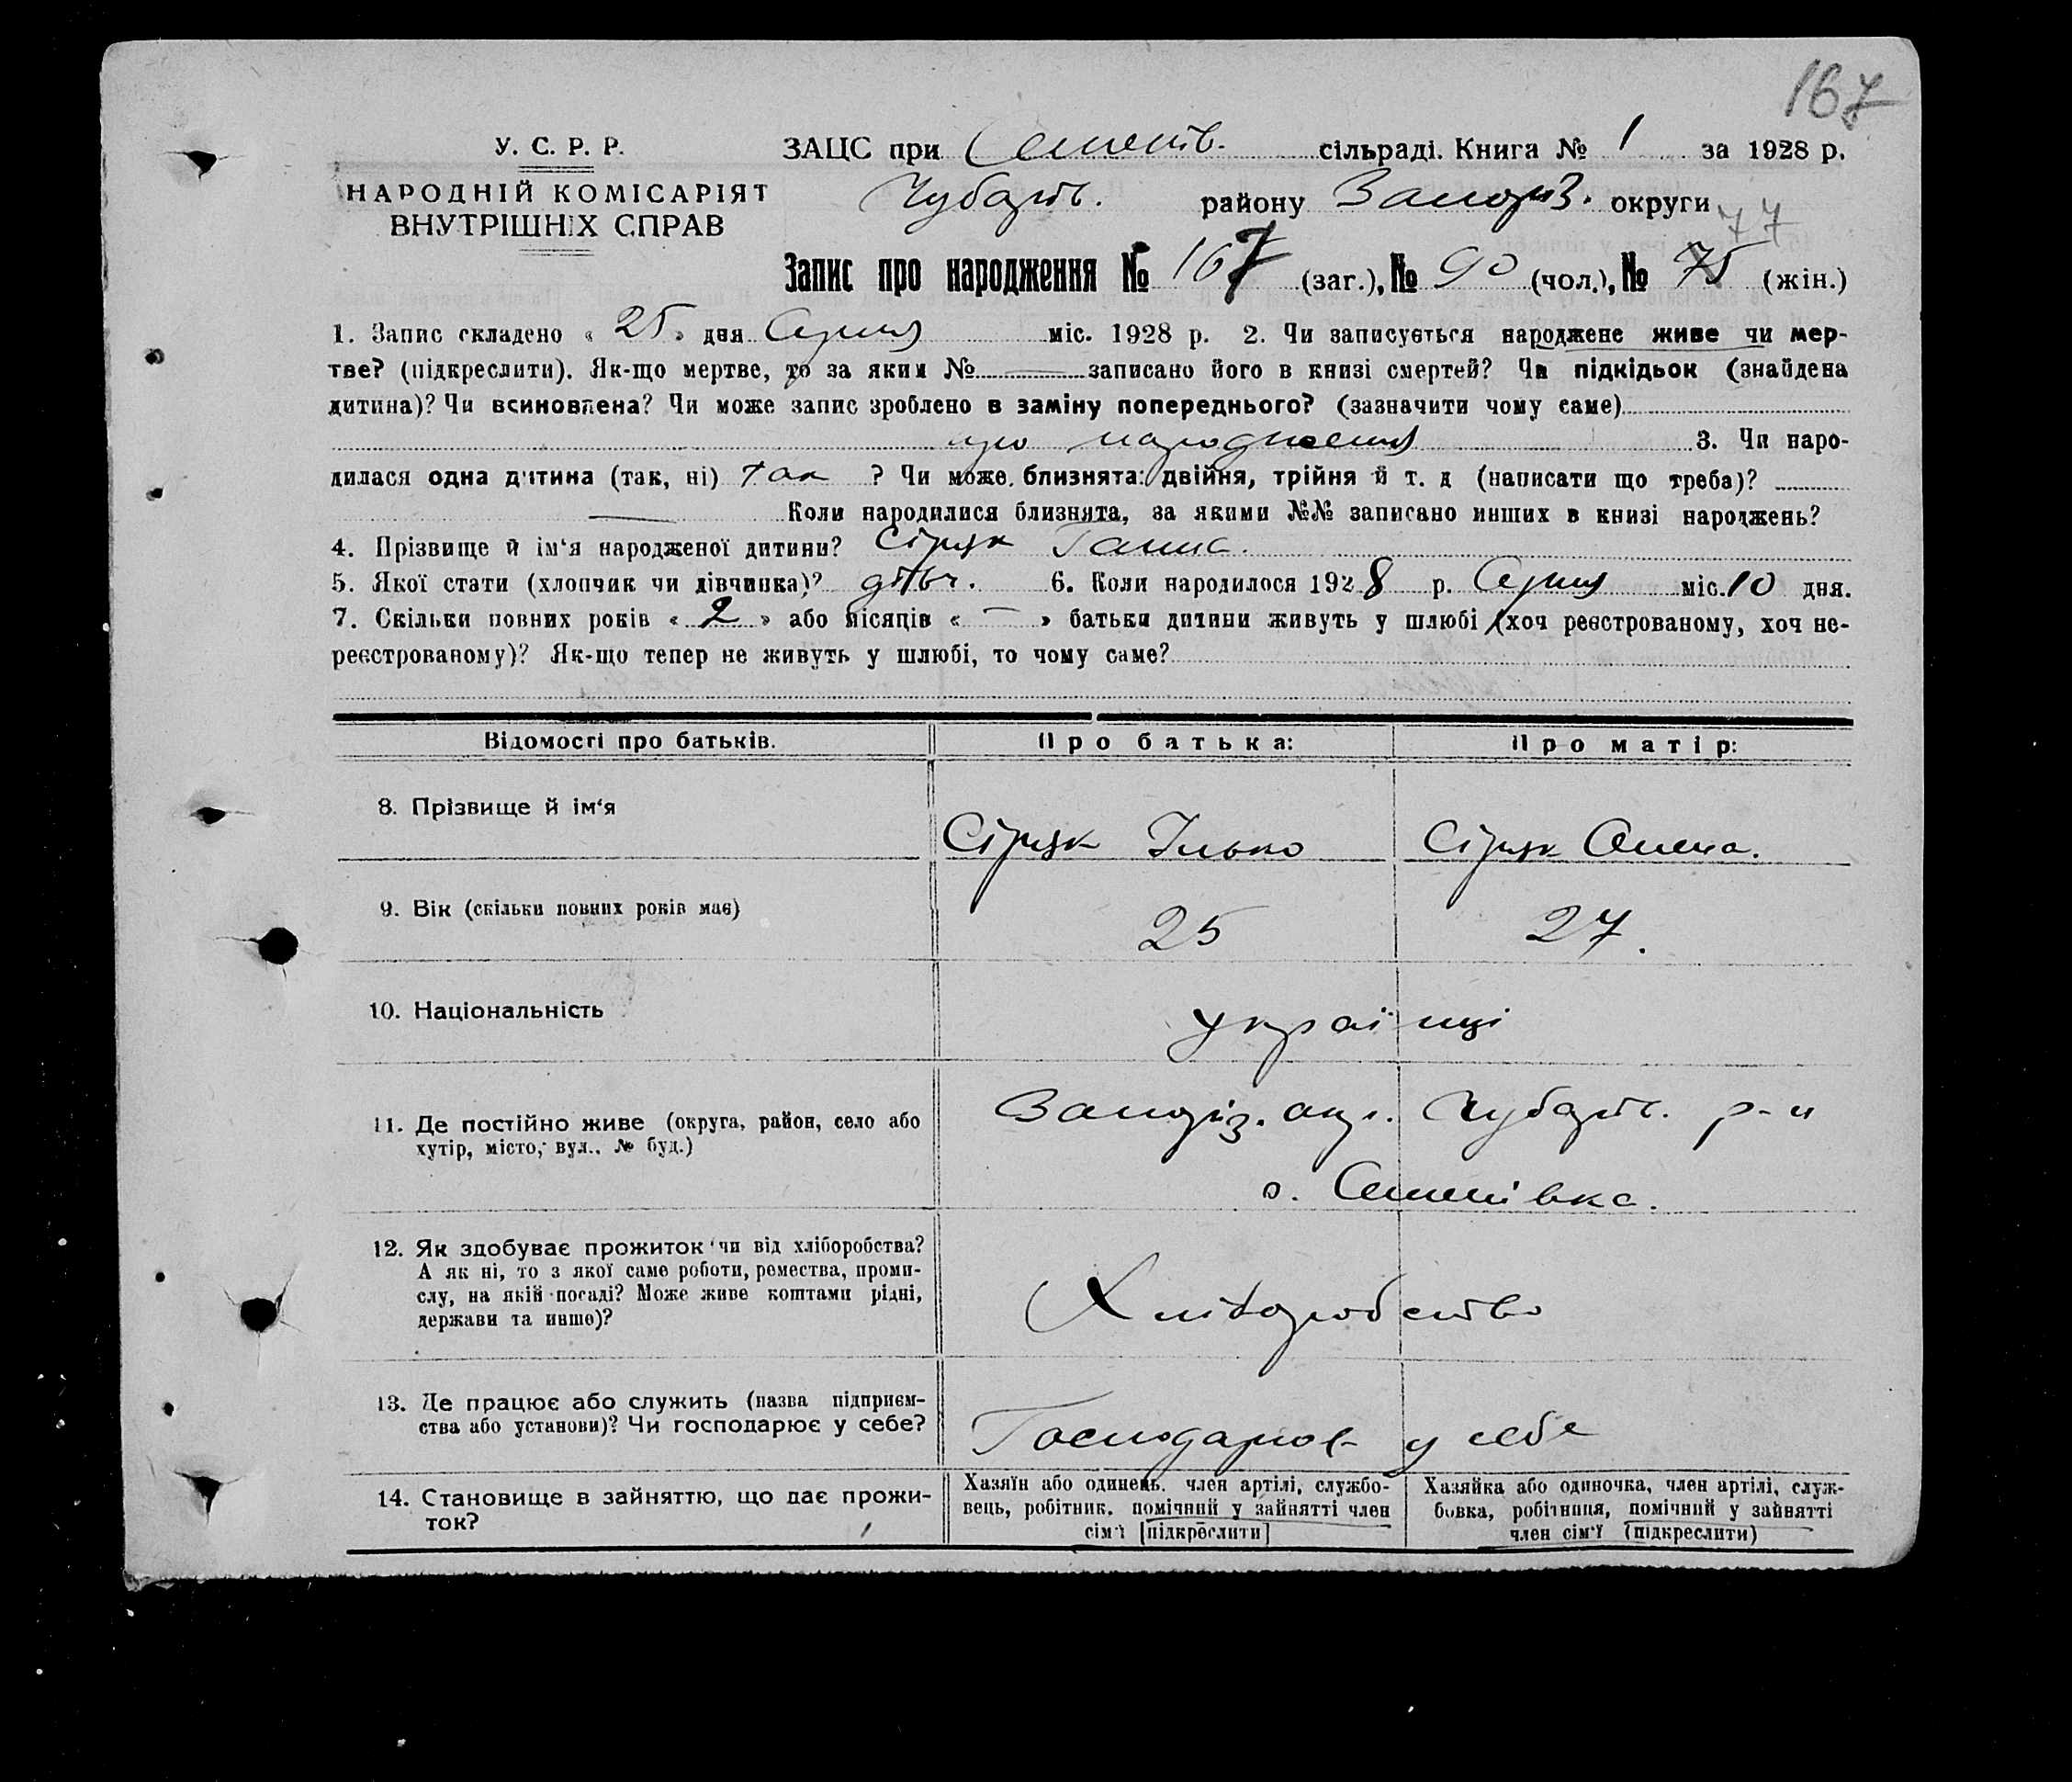 167
У. С. Р. Р.
НАРОДНІЙ КОМІСАРІЯТ
ВНУТРІШНІХ СПРАВ
ЗАЦС при Семенів. сільраді. Книга № 1 за 1928 р.
Чубарів. району Запоріз. округи
77
Запис про народження № 167 (заг.), № 90 (чол.), № 75 (жін.)
1. Запис складено « 25 » дня Серпня міс. 1928 р. 2. Чи записується народжене живе чи мер-
тве? (підкреслити). Як-що мертве, то за яким № — записано його в книзі смертей? Чи підкідьок (знайдена
дитина)? Чи всиновлена? Чи може запис зроблено в заміну попереднього? (зазначити чому саме)
про народження 3. Чи наро-
дилася одна дитина (так, ні) так ? Чи може близнята: двійня, трійня й т. д (написати що треба)?
— Коли народилися близнята, за якими №№ записано инших в книзі народжень?
4. Прізвище й ім'я народженої дитини? Сіряк Ганна.
5. Якої стати (хлопчик чи дівчинка)? дівч. 6. Коли народилося 1928 р. Серпня міс. 10 дня.
7. Скільки повних років « 2 » або місяців « — » батьки дитини живуть у шлюбі (хоч реєстрованому, хоч не-
реєстрованому)? Як-що тепер не живуть у шлюбі, то чому саме?
Відомості про батьків. Про батька: Про матір:
8. Прізвище й ім'я Сіряк Ілько Сіряк Олена.
9. Вік (скільки повних років має) 25 27.
10. Національність українці
11. Де постійно живе (округа, район, село або
хутір, місто, вул., № буд.)
Запоріз. окр. Чубарів. р-н
с. Семенівка.
12. Як здобуває прожиток чи від хліборобства?
А як ні, то з якої саме роботи, ремества, проми-
слу, на якій посаді? Може живе коштами рідні,
держави та инше)?
Хліборобство
13. Де працює або служить (назва підприєм-
ства або установи)? Чи господарює у себе?
Господарює у себе
14. Становище в зайняттю, що дає прожи-
ток?
Хазяїн або одинець. член артілі, службо-
вець, робітник, помічний у зайнятті член
сім'ї [підкреслити]
Хазяйка або одиночка, член артілі, служ-
бовка, робітниця, помічний у зайнятті
член сім'ї (підкреслити)